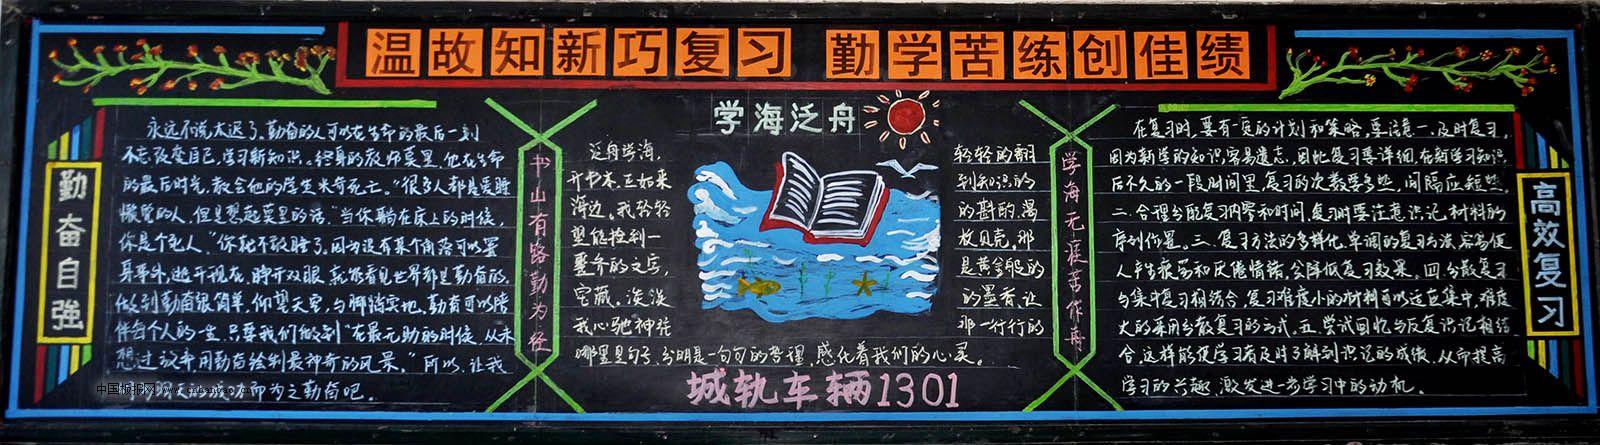 温故知新巧复习 勤学苦练创佳绩
勤奋自强
永远不说太迟了。勤奋的人可以在生命的最后一刻
不忘改变自己,学习新知识。终身的教师莫里,他在生命
的最后时光,教会他的学生米奇死亡。"很多人都是爱睡
懒觉的人,但是想起莫里的话,"当你躺在床上的时候,
你是个死人。"你就不敢睡了。因为没有某个角落可以置
身事外,逃开现在。睁开双眼,就能看见世界都是勤奋的。
做到勤奋很简单,仰望天空,与脚踏实地,勤奋可以陪
伴每个人的一生,只要我们做到"在最无助的时候,从未
想过放弃用勤奋绘制最神奇的风景。"所以,让我
而为之勤奋吧。
书山有路勤为径
学海泛舟
泛舟学海,
开书本,正如来
海边。我轻轻
望能捡到一
宝藏。淡淡
我心驰神往
轻轻的翻
到知识的
的斟酌,渴
枚贝壳。那
是黄金般的
的墨香,让
那一行行的
哪里是句号,分明是一句句的哲理,感化着我们的心灵。
城轨车辆1301
学海无涯苦作舟
在复习时,要有一定的计划和策略,要注意一、及时复习,
因为新学的知识容易遗忘,因此复习要详细,在新学习知识
后不久的一段时间里,复习的次数要多些,间隔应短些。
二、合理分配复习内容和时间,复习时要注意识记材料的
序列位置。三、复习方法的多样化,单调的复习方法,容易使
人产生疲劳和厌倦情绪,会降低复习效果。四、分散复习
与集中复习相结合,复习难度小的材料可以适应集中,难度
大的采用分散复习的方式。五、尝试回忆与反复识记相结
合,这样能使学习者及时了解到识记的成绩,从而提高
学习的兴趣,激发进一步学习中的动机。
高效复习
中国板报网